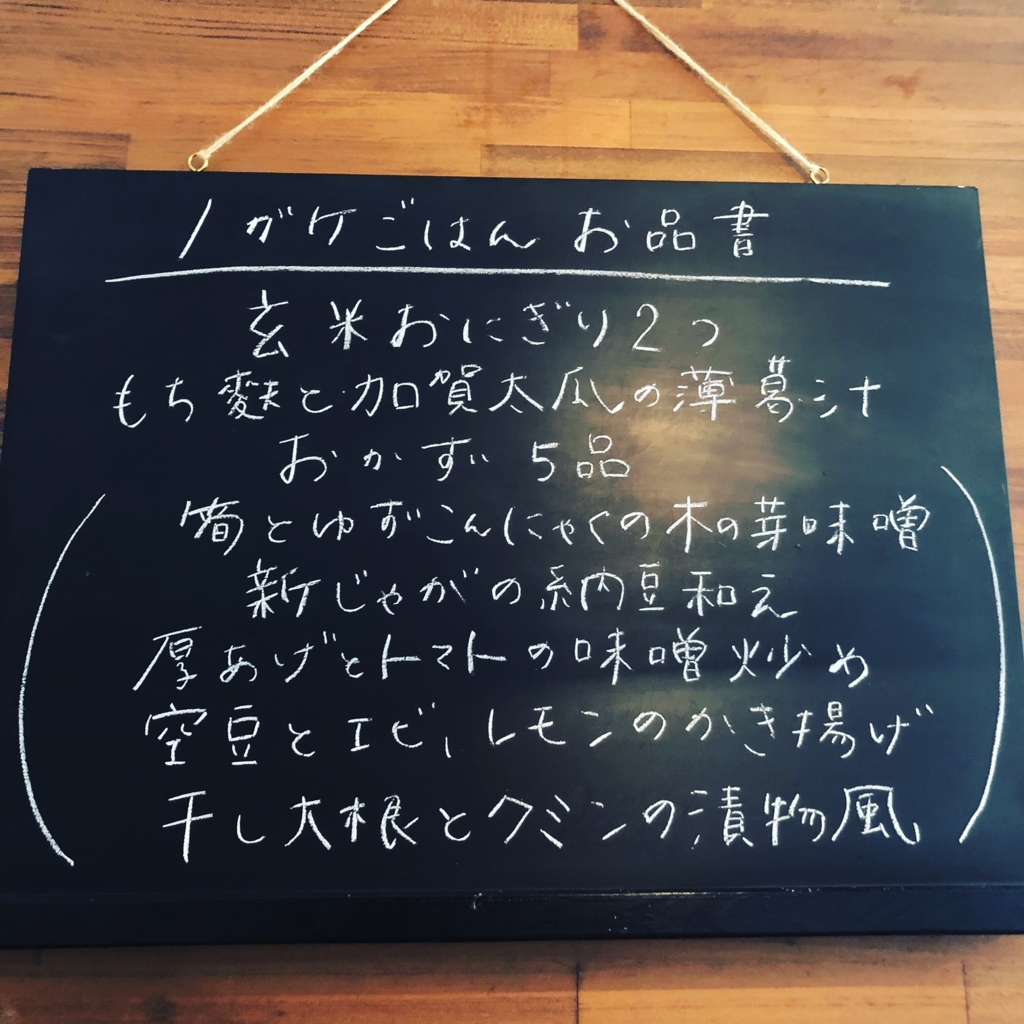 ノガケごはん お品書
玄米おにぎり2つ
もち麩と加賀太瓜の薄葛汁
おかず 5品
筍とゆずこんにゃくの木の芽味噌
新じゃがの納豆和え
厚あげとトマトの味噌炒め
空豆とエビ、レモンのかき揚げ
干し大根とクミンの漬物風